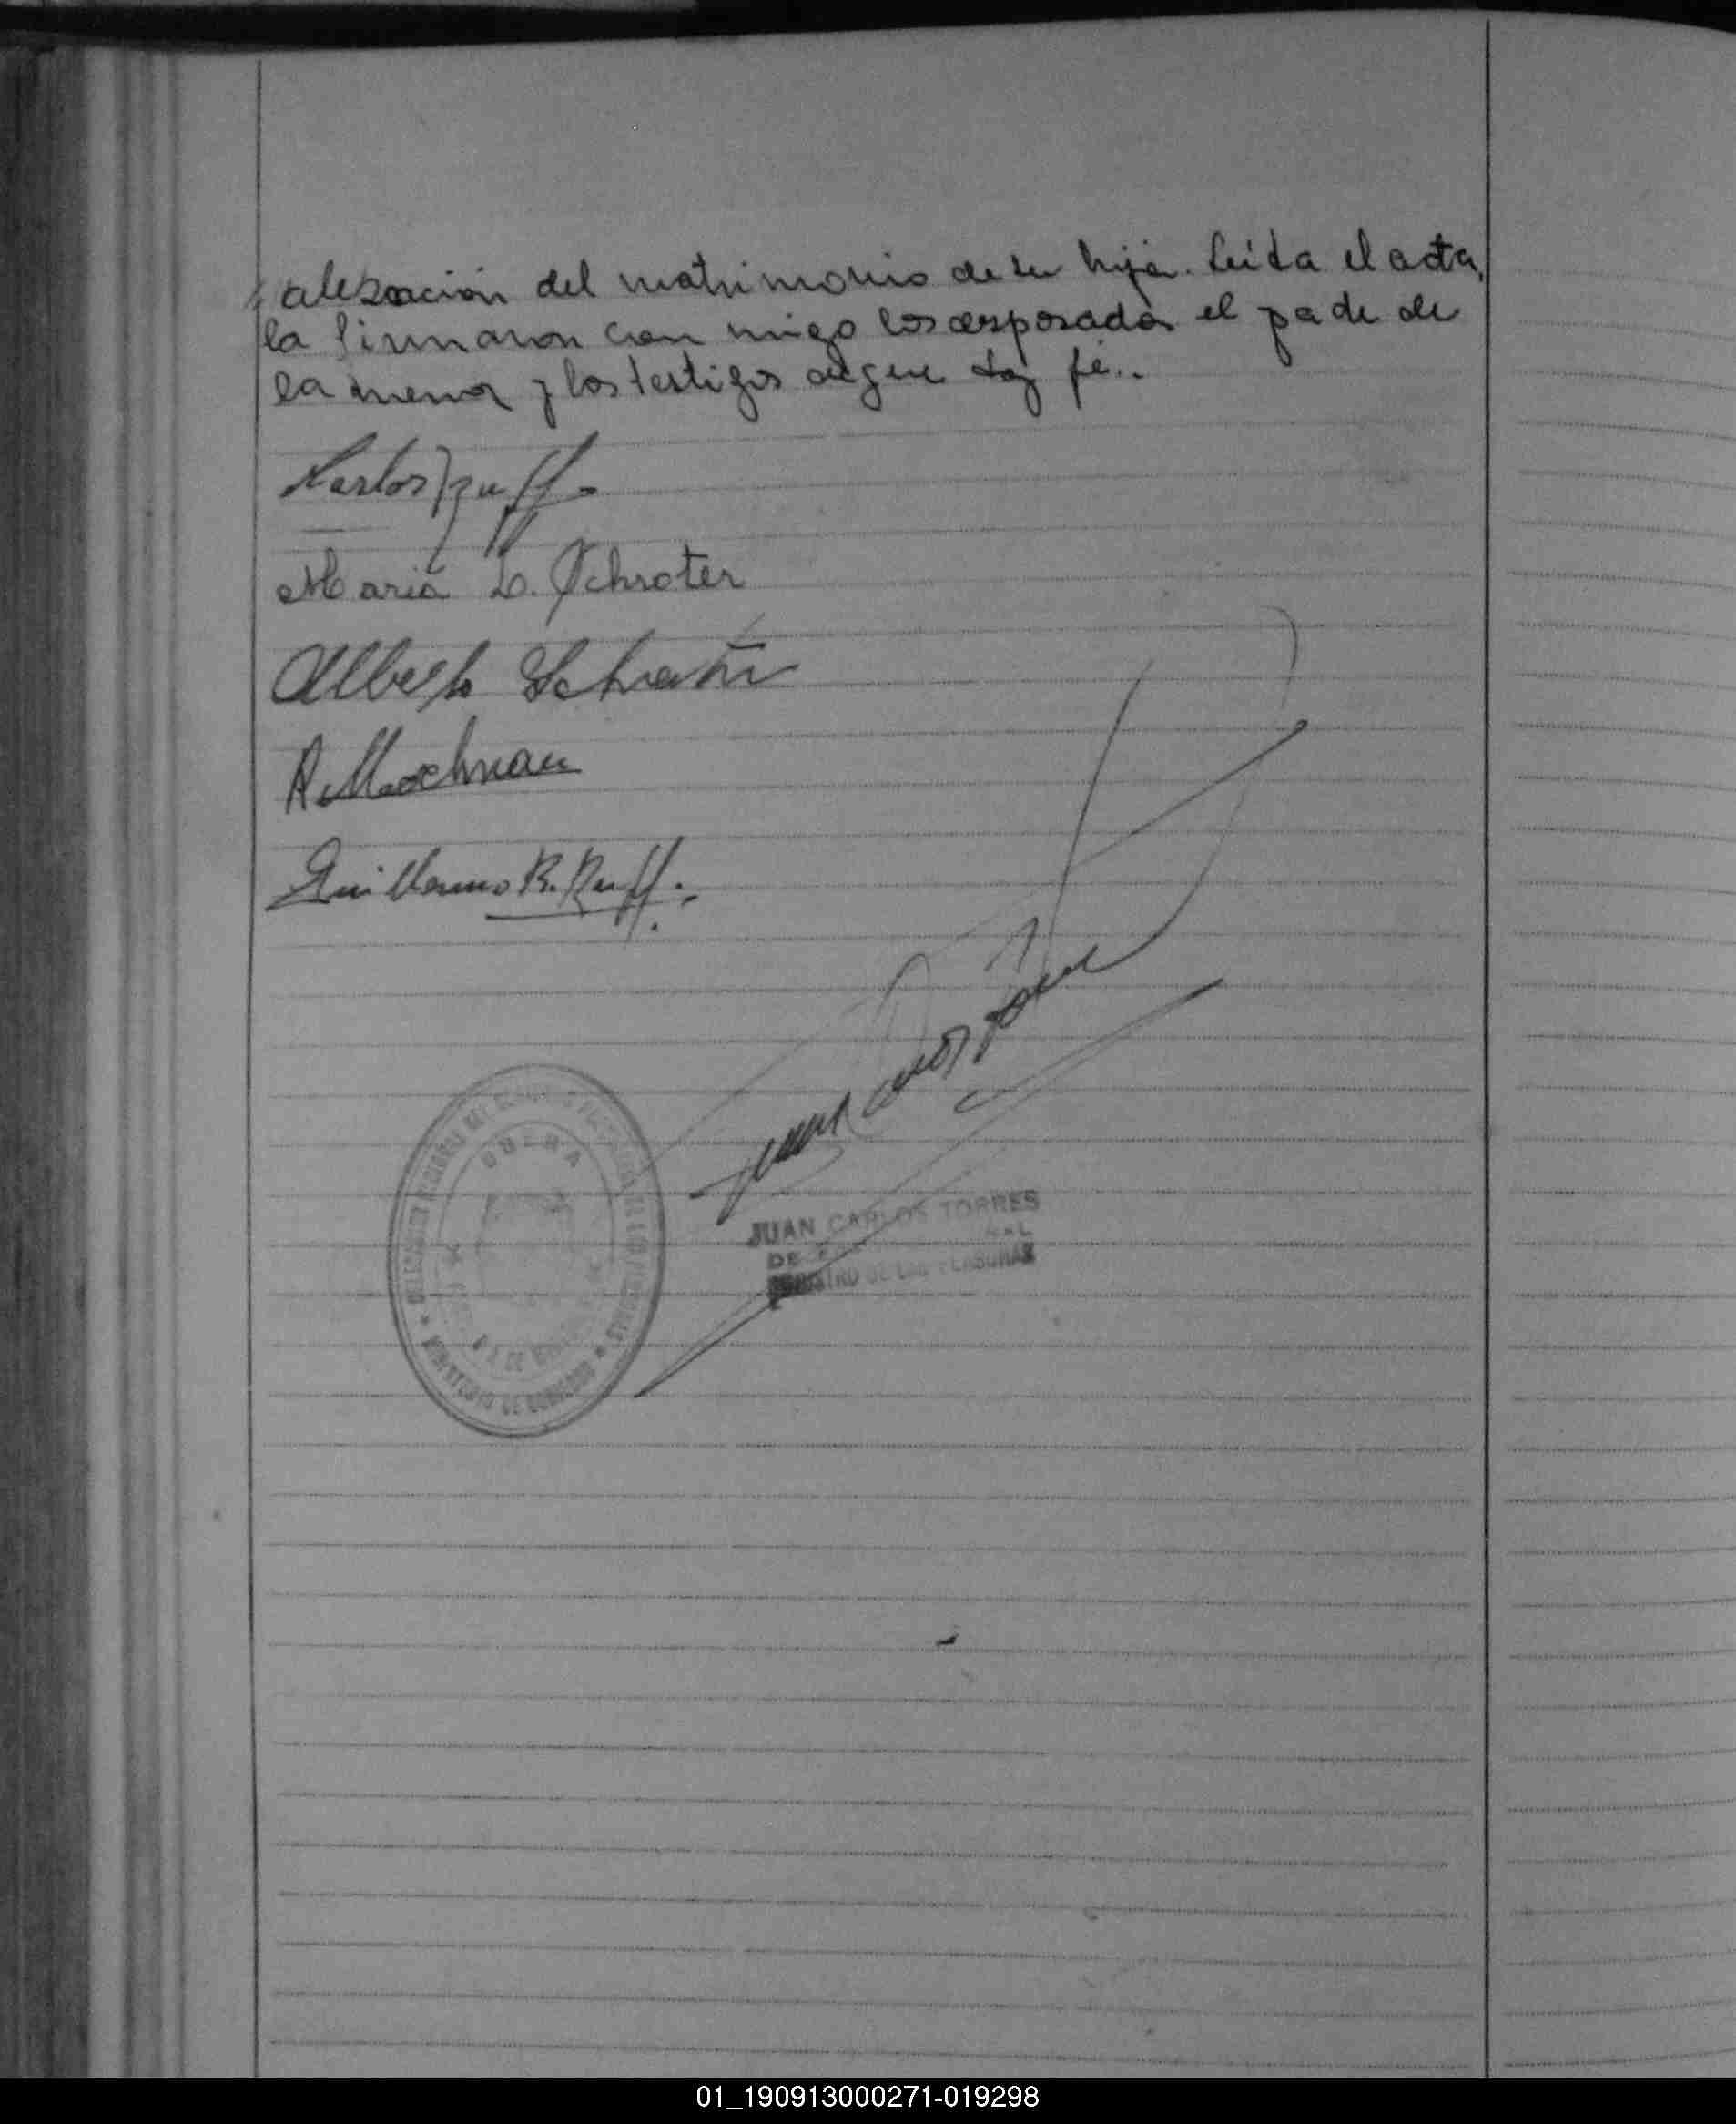 alización del matrimonio de su hija. Leida el acta,
la firmaron con migo los esposados el padre de
la menor y los testigos de que doy fé..
Carlos Ruff.
Maria L. Schroter
Alberto Schroter
A. Mochnau
Guillermo R. Ruff.
Juan Carlos Torres
OBERA
MINISTERIO DE GOBIERNO
JUAN CARLOS TORRES
DE
REGISTRO DE LAS PERSONAS
01_190913000271-019298